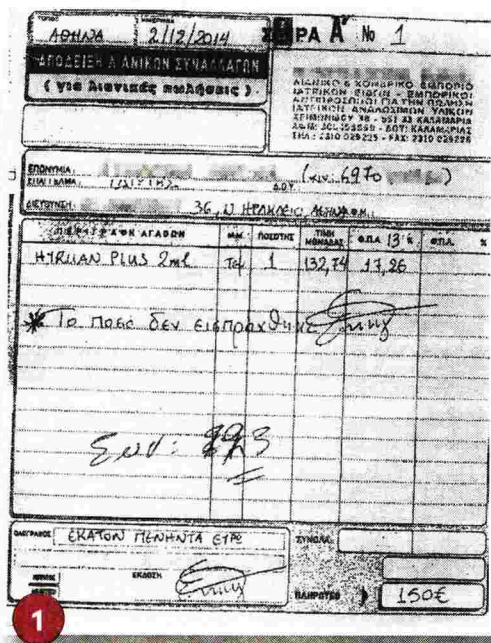 ΑΘΗΝΑ 2/12/2014 ΣΕΙΡΑ Α' № 1
ΑΠΟΔΕΙΞΗ ΛΙΑΝΙΚΩΝ ΣΥΝΑΛΛΑΓΩΝ
( για λιανικές πωλήσεις )
ΛΙΑΝΙΚΟ & ΧΟΝΔΡΙΚΟ ΕΜΠΟΡΙΟ
ΙΑΤΡΙΚΩΝ ΕΙΔΩΝ - ΕΜΠΟΡΙΚΟΙ
ΑΝΤΙΠΡΟΣΩΠΟΙ ΓΙΑ ΤΗΝ ΠΩΛΗΣΗ
ΙΑΤΡΙΚΩΝ ΑΝΑΛΩΣΙΜΩΝ ΥΛΙΚΩΝ
38 - 551 33 ΚΑΛΑΜΑΡΙΑ
ΔΟΥ: ΚΑΛΑΜΑΡΙΑΣ
ΤΗΛ.: 2310 029225 - FAX: 2310 029226
ΕΠΩΝΥΜΙΑ: (κιν. 6970 )
ΕΠΑΓΓΕΛΜΑ: ΙΔΙΩΤΗΣ Δ.Ο.Υ.
ΔΙΕΥΘΥΝΣΗ: 36, Ν ΗΡΑΚΛΕΙΟ, ΑΘΗΝΑ
ΠΕΡΙΓΡΑΦΗ ΑΓΑΘΩΝ Μ.Μ. ΠΟΣΟΤΗΣ ΤΙΜΗ ΜΟΝΑΔΑΣ Φ.Π.Α. 13 % Φ.Π.Α. %
HYRUAN PLUS 2ml Τεμ 1 132,74 17,26
* Το ποσό δεν εισπράχθηκε
Συν: 223
ΟΛΟΓΡΑΦΩΣ ΕΚΑΤΟΝ ΠΕΝΗΝΤΑ ΕΥΡΩ ΣΥΝΟΛΑ
ΕΚΔΟΣΗ
ΠΛΗΡΩΤΕΟ 150€
1